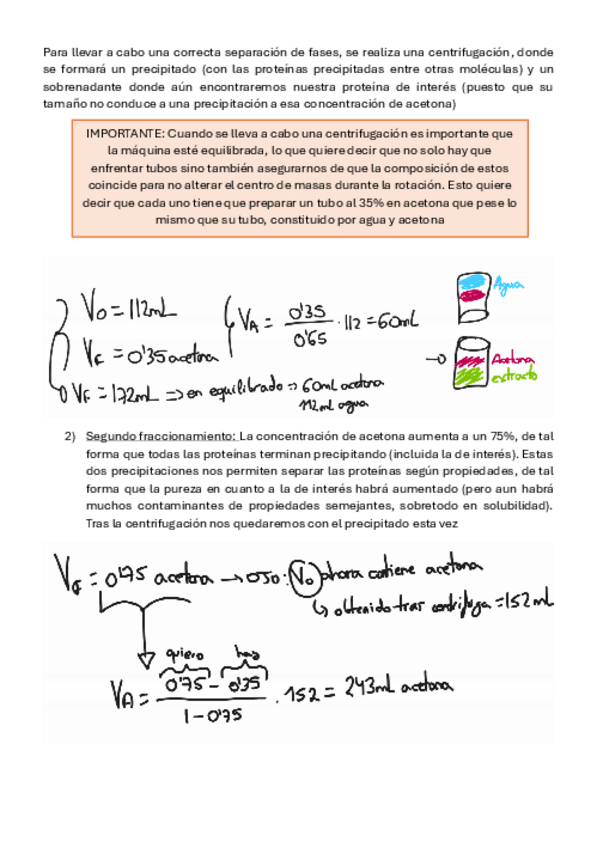 Para llevar a cabo una correcta separación de fases, se realiza una centrifugación, donde
se formará un precipitado (con las proteínas precipitadas entre otras moléculas) y un
sobrenadante donde aún encontraremos nuestra proteína de interés (puesto que su
tamaño no conduce a una precipitación a esa concentración de acetona)
IMPORTANTE: Cuando se lleva a cabo una centrifugación es importante que
la máquina esté equilibrada, lo que quiere decir que no solo hay que
enfrentar tubos sino también asegurarnos de que la composición de estos
coincide para no alterar el centro de masas durante la rotación. Esto quiere
decir que cada uno tiene que preparar un tubo al 35% en acetona que pese lo
mismo que su tubo, constituido por agua y acetona
V₀ = 112mL
V_A = 0'35 / 0'65 · 112 = 60mL
Agua
V_F = 0'35 acetona
Acetona
extracto
V_F = 172mL => en equilibrado => 60mL acetona
112 mL agua
2) Segundo fraccionamiento: La concentración de acetona aumenta a un 75%, de tal
forma que todas las proteínas terminan precipitando (incluida la de interés). Estas
dos precipitaciones nos permiten separar las proteínas según propiedades, de tal
forma que la pureza en cuanto a la de interés habrá aumentado (pero aun habrá
muchos contaminantes de propiedades semejantes, sobretodo en solubilidad).
Tras la centrifugación nos quedaremos con el precipitado esta vez
V_F = 0'75 acetona → OJO: V₀ ahora contiene acetona
↳ obtenido tras centrífuga = 152 mL
quiero hay
V_A = 0'75 - 0'35 / 1 - 0'75 · 152 = 243mL acetona